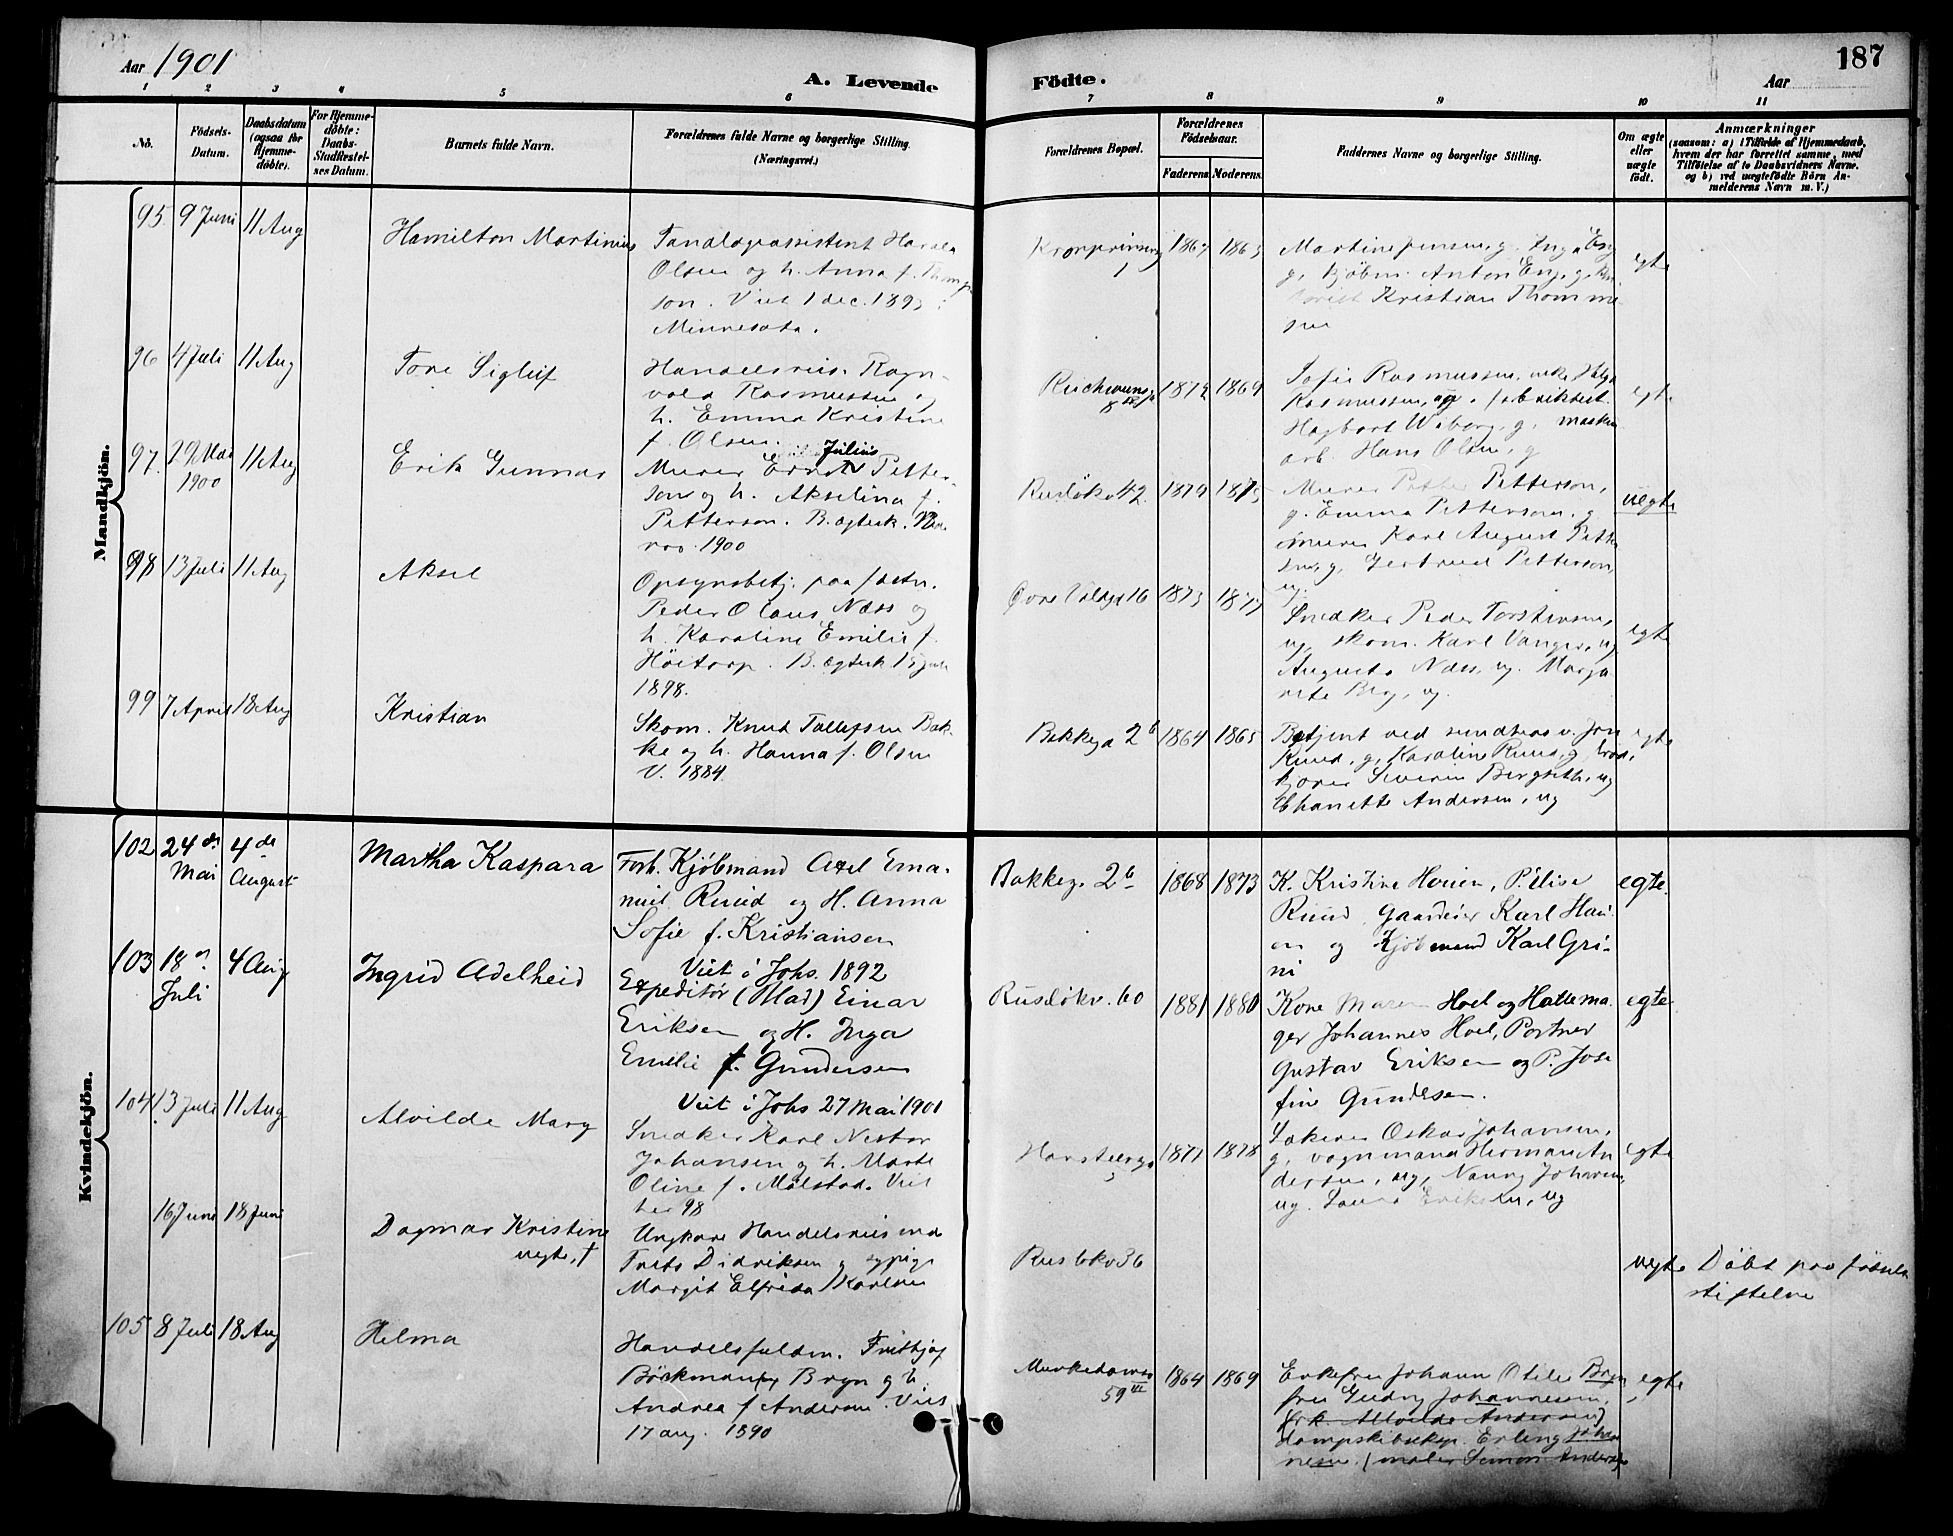 Aar 1901
A. Levende
Födte.
Aar
187
1 2 3 4 5 6 7 8 9 10 11
No.
Födsels-Datum.
Daabsdatum (ogsaa for Hjemme-döbte).
For Hjemme-döbte: Daabs-Stadfæstel-ses Datum.
Barnets fulde Navn.
Forældrenes fulde Navne og borgerlige Stilling.
(Næringsvei.)
Forældrenes Bopæl.
Forældrenes Födselsaar.
Faderens. Moderens.
Faddernes Navne og borgerlige Stilling.
Om ægte eller uægte födt.
Anmærkninger
(saasom: a) i Tilfælde af Hjemmedaab,
hvem der har forrettet samme, med
Tilföielse af to Daabsvidners Navne.
og b) ved uægtefödte Börn An-
melderens Navn m. V.)
Mandkjön.
95. 9 Juni 11 Aug
Hamilton Martinius
Tandlægeassistent Harald
Olsen og h. Anna f. Thomp
son. Viet 1 dec. 1893 i
Minnesota.
1863
g. Kjøbm. Anton Eng, g.
Kristian Thomme
sen
egte
96 4 Juli 11 Aug
Tore Sigleif
Handelsreis. Ragn-
vald Rasmussen og
h. Emma Kristine
f. Olsen.
1872 1869
Sofie Rasmussen, enke Helga
Rasmussen, og fabrikbest.
Hagbart Wiborg, g, maskin
arb. Hans Olsen, g
egte
97. 22 Mai 1900 11 Aug
Erik Gunnar
Julius
Murer Ernst Petter-
son og h. Akselina f.
Petterson. B. ægtesk.
1900
Rusløkv 42.
Murer Petter Petterson,
g. Emma Petterson, g
murer Karl August Petter
son, g, Gertrud Petterson,
ug.
uegte
98 13 Juli 11 Aug
Aksel
Opsynsbetj. paa fæstn.
Peder Olaus Næss og
h. Karoline Emilie f.
Höitorp. B. ægtesk 15
1898.
Øvre Voldgt 16 1873 1877
Snedker Peder Torstensen,
ug, skom. Karl Vanger, ug
Augusta Næss, ug. Marga
rete Berg, ug.
egte
99 7 April 18 Aug
Kristian
Skom. Knut Tollefsen Bak-
ke og h. Hanna f. Olsen
V. 1884.
Bakkeg 2 b 1864 1865
Betjent ved sundhedsv. Jon
Ruud, g, Karoline Ruud, g,
Severin Bergseth, ug
Chanette Andersen, ug
egte
Kvindekjön.
102 24 de Mai 4 de August
Martha Kaspara
Forh. Kjöbmand Axel Ema-
nuel Ruud og H. Anna
Sofie f. Kristiansen
Viet i Johs. 1892
Bakkeg. 2 b 1868 1873
K. Kristine Houen, P. Elise
Ruud, Gaardeier Karl Hau-
en og Kjöbmand Karl Gri-
ni
egte.
103 18 de Juli 4 Aug
Ingrid Adelheid
Expeditör (Mad) Einar
Eriksen og H. Inga
Emelie f. Gundersen
Viet i Johs 27 Mai 1901
Rusløkv. 60 1881 1880
Kone Maren Hoel og Hattema-
ger Johannes Hoel, Portner
Gustav Eriksen og P. Jose
fine Gundesen.
egte.
104. 13 Juli 11 Aug
Alvilde Mary
Snedker Karl Nestor
Johansen og h. Marte
Oline f. Mølstad. Viet
her 98
1877 1878
Oskar Johansen,
g, vognmand Herman An
dersen, ug, Nanny Johansen,
ug. Laura Eriksen, ug
egte
16 Juni 18 Juni
Dagmar Kristine
uegte, †
Ungkarl Handelsreisende
Frits Didriksen og pige
Margit Elfrida Karlsen
Rusløkv 36
uegte
Döbt paa fødsels
stiftelse
105 8 Juli 18 Aug
Helma
Handelsfuldm. Fritjof
Böckmann Bryn og h.
Andrea f Andersen. Viet
17 aug. 1890
Munkedamsv 59 III 1864 1869
Enkefru Johann Otelie Bryn
fru Gudny Johannesen,
frk. Alvilde Andersen)
dampskibseksp. Erling Johan
nesen. (maler Simon Andersen
egte